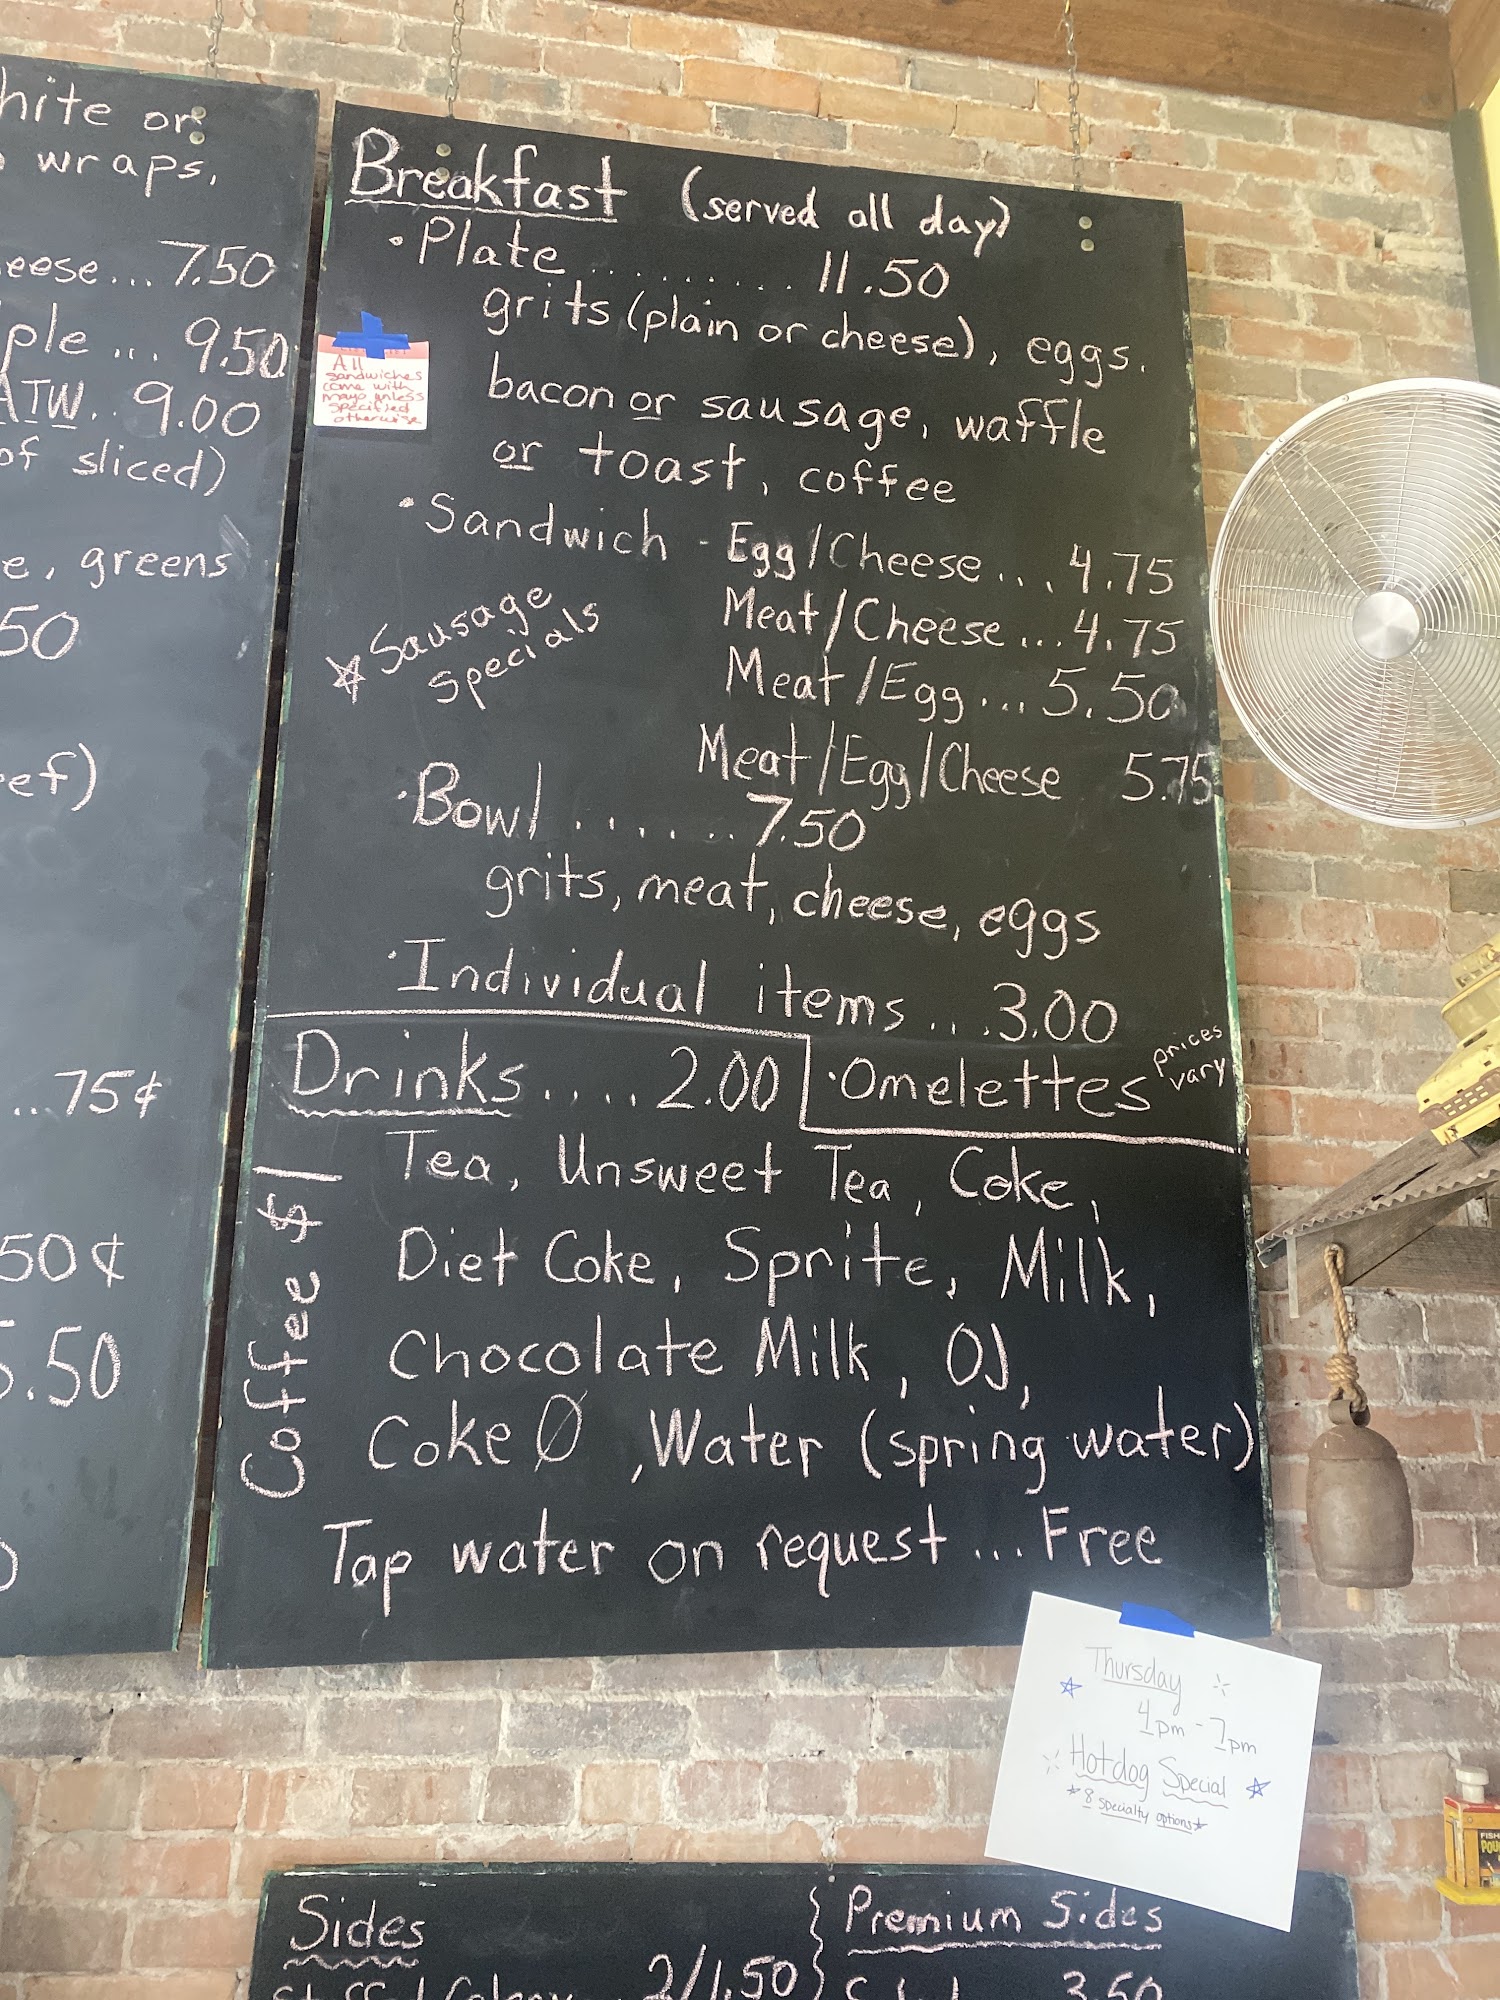 hite or
wraps,
eese... 7.50
ple ... 9.50
ATW.. 9.00
of sliced)
e, greens
50
ef)
...75¢
50¢
5.50
Breakfast (served all day)
• Plate ......... 11.50
grits (plain or cheese), eggs,
bacon or sausage, waffle
or toast, coffee
All
sandwiches
come with
mayo unless
specified
otherwise
• Sandwich - Egg/Cheese... 4.75
Meat/Cheese... 4.75
Meat/Egg... 5.50
Meat/Egg/Cheese 5.75
☆ Sausage
Specials
• Bowl ....... 7.50
grits, meat, cheese, eggs
• Individual items....3.00
Drinks.... 2.00
• Omelettes prices
vary
Coffee $1
Tea, Unsweet Tea, Coke,
Diet Coke, Sprite, Milk,
Chocolate Milk, OJ,
Coke Ø, Water (spring water)
Tap water on request ... Free
Thursday
4pm - 7pm
Hotdog Special
* 8 specialty options *
Sides
2/1.50
Premium Sides
3.50
FISH